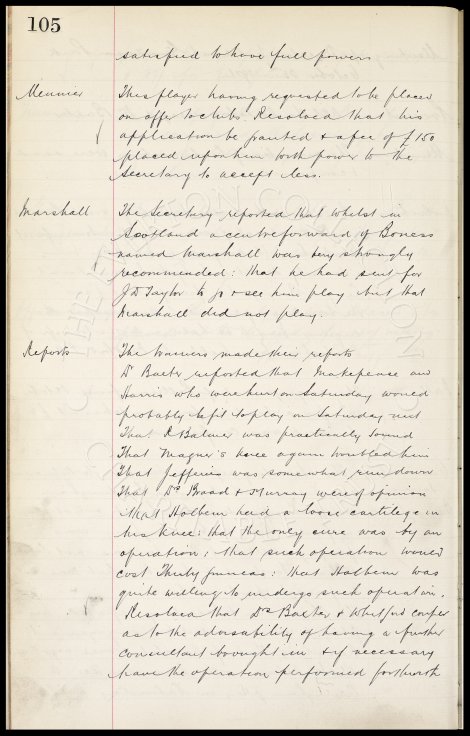 105
satisfied to have full powers
Meunier This player having requested to be placed
on offer to clubs Resolved that his
application be granted & a fee of £150
placed upon him with power to the
Secretary to accept less.
Marshall The Secretary reported that whilst in
Scotland a centreforward of Boness
named Marshall was very strongly
recommended: that he had sent for
J D Taylor to go & see him play but that
Marshall did not play.
Reports The trainers made their reports
Dr Baxter reported that Makepeace and
Harris who were hurt on Saturday would
probably be fit to play on Saturday next
That R Balmer was practically sound
That Magner's knee again troubled him
That Jefferies was somewhat run down
That Drs & Murray were of opinion
that Holbem had a loose cartilege in
his knee: that the only cure was by an
operation; that such operation would
cost Thirty guineas: that Holbem was
quite willing to undergo such operation.
Resolved that Drs Baxter & Whitford confer
as to the advisability of having a further
consultant brought in & if necessary
have the operation performed forthwith